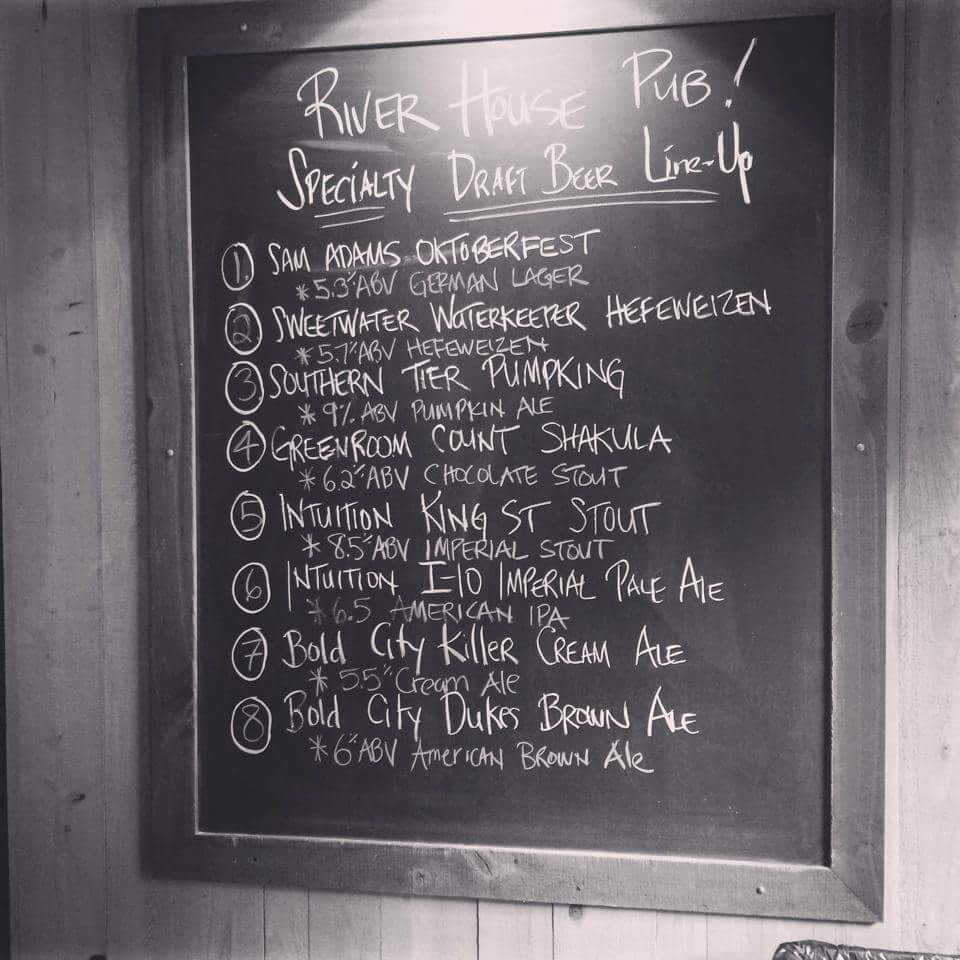 RIVER HOUSE PUB!
SPECIALTY DRAFT BEER LINE-UP
1. SAM ADAMS OKTOBERFEST
*5.3% ABV GERMAN LAGER
2 SWEETWATER WATERKEEPER HEFEWEIZEN
*5.7% ABV HEFEWEIZEN
3. SOUTHERN TIER PUMPKING
*9% ABV PUMPKIN ALE
4 GREENROOM COUNT SHAKULA
*6.2% ABV CHOCOLATE STOUT
5 INTUITION KING ST STOUT
*8.5% ABV IMPERIAL STOUT
6 INTUITION I-10 IMPERIAL PALE ALE
*6.5 AMERICAN IPA
7 Bold City Killer CREAM ALE
*5.5% Cream Ale
8 Bold City Dukes BROWN ALE
*6% ABV American BROWN Ale